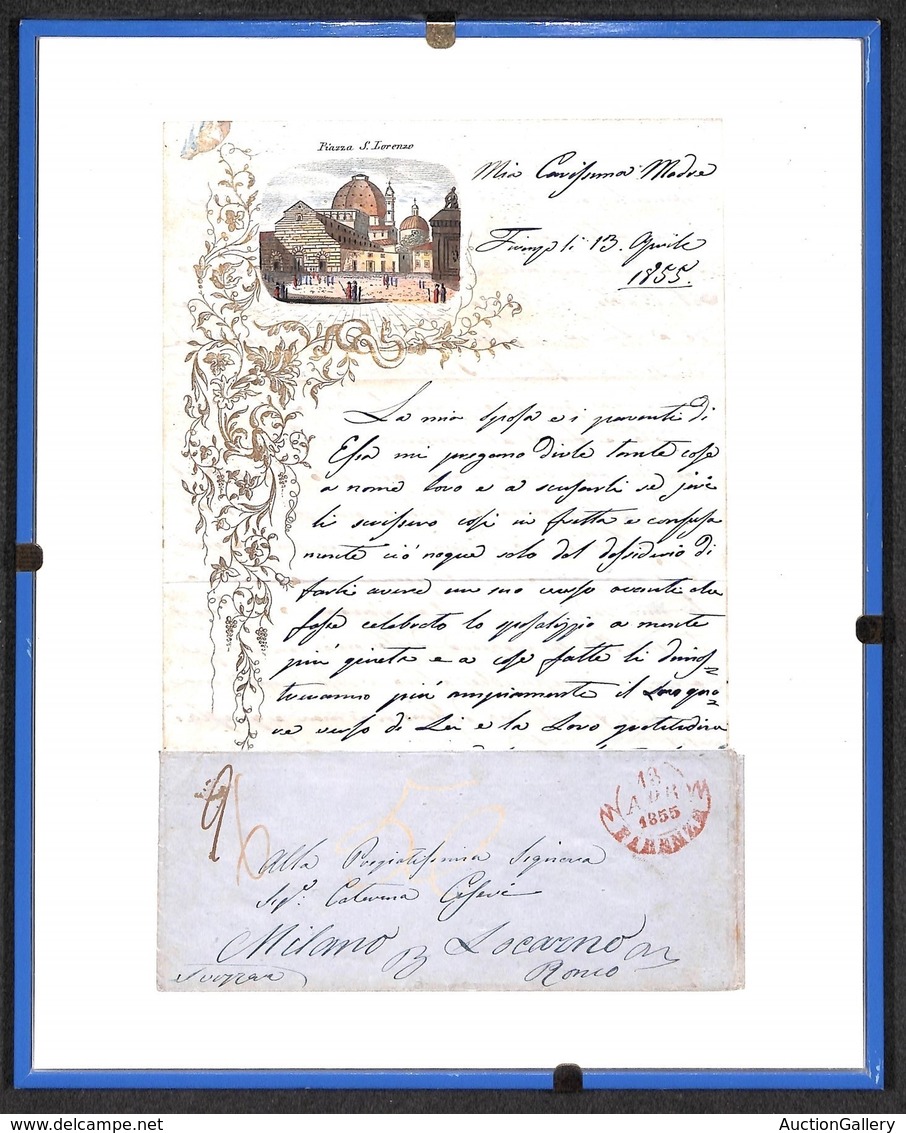 Piazza S. Lorenzo
Mia Carissima Madre
Firenze li 13. Aprile
1855.
La mia sposa e i parenti di
Essa mi pregano dirle tante cose
a nome loro e a scusarli se
li scrissero così in fretta e confusa
mente ciò naque solo dal dessiderio di
farli avere un suo verso avanti che
fosse celebrato lo sposalizzio a mente
più quieta e a cose fatte li dimos=
treranno più ampiamente il
verso di Lei e la Loro gratitudine
13
APR
1855
FIRENZE
Alla Pregiatissima Signora
Sigra: Caterina
Milano Locarno
Svizzera Ronco
AuctionGallery